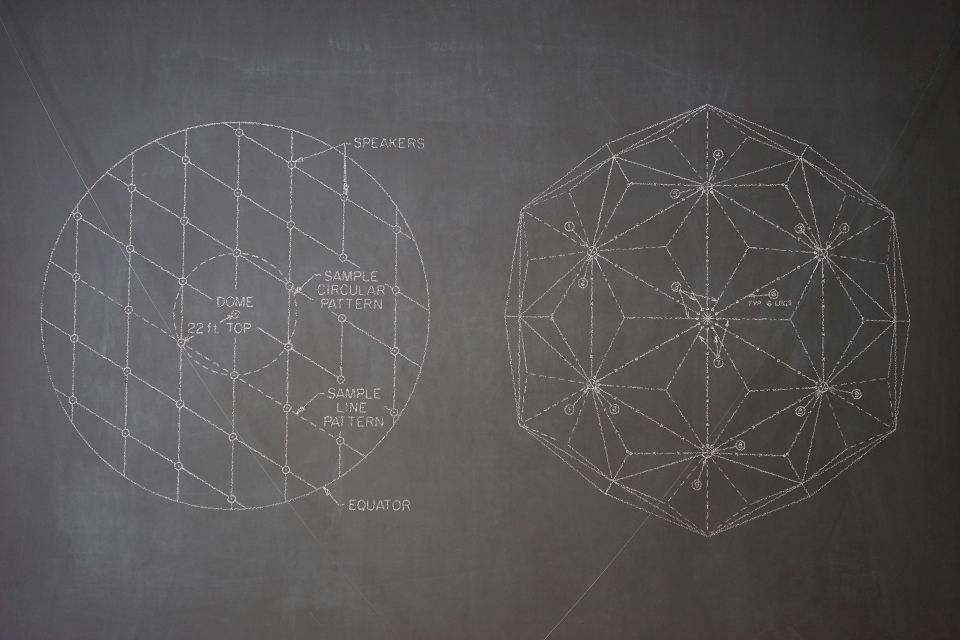 SPEAKERS
SAMPLE
CIRCULAR
PATTERN
DOME
22 ft. TOP
SAMPLE
LINE
PATTERN
EQUATOR
4
5
1
2
3
4
3
6
TYP. 6 LEGS
7
1
2
8
9
8
9